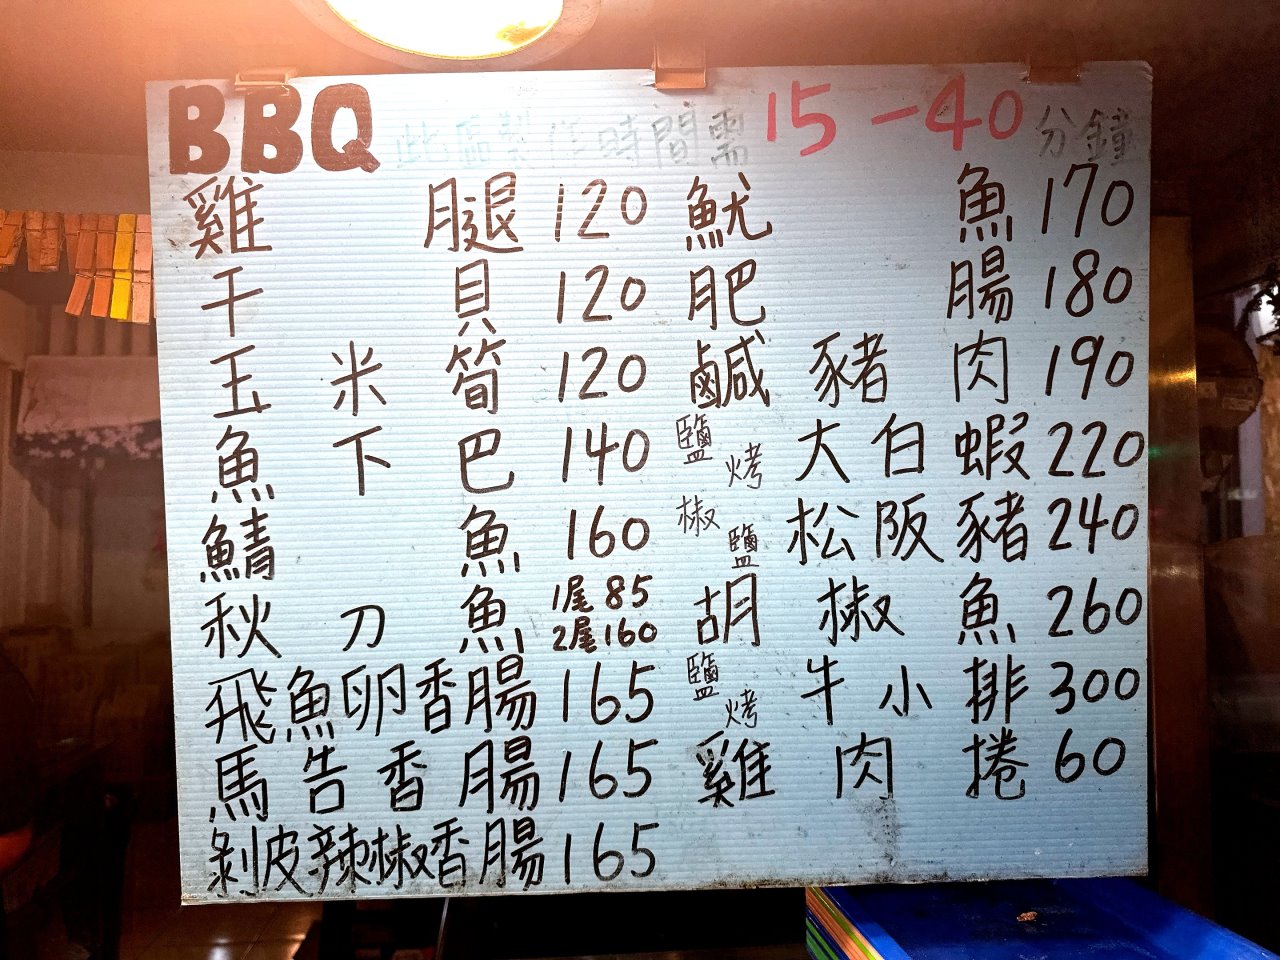 BBQ 此區製作時間需 15-40 分鐘
雞腿 120
干貝 120
玉米筍 120
魚下巴 140
鯖魚 160
秋刀魚 1尾 85 2尾 160
飛魚卵香腸 165
馬告香腸 165
剝皮辣椒香腸 165
魷魚 170
肥腸 180
鹹豬肉 190
鹽烤大白蝦 220
椒鹽松阪豬 240
胡椒魚 260
鹽烤牛小排 300
雞肉捲 60